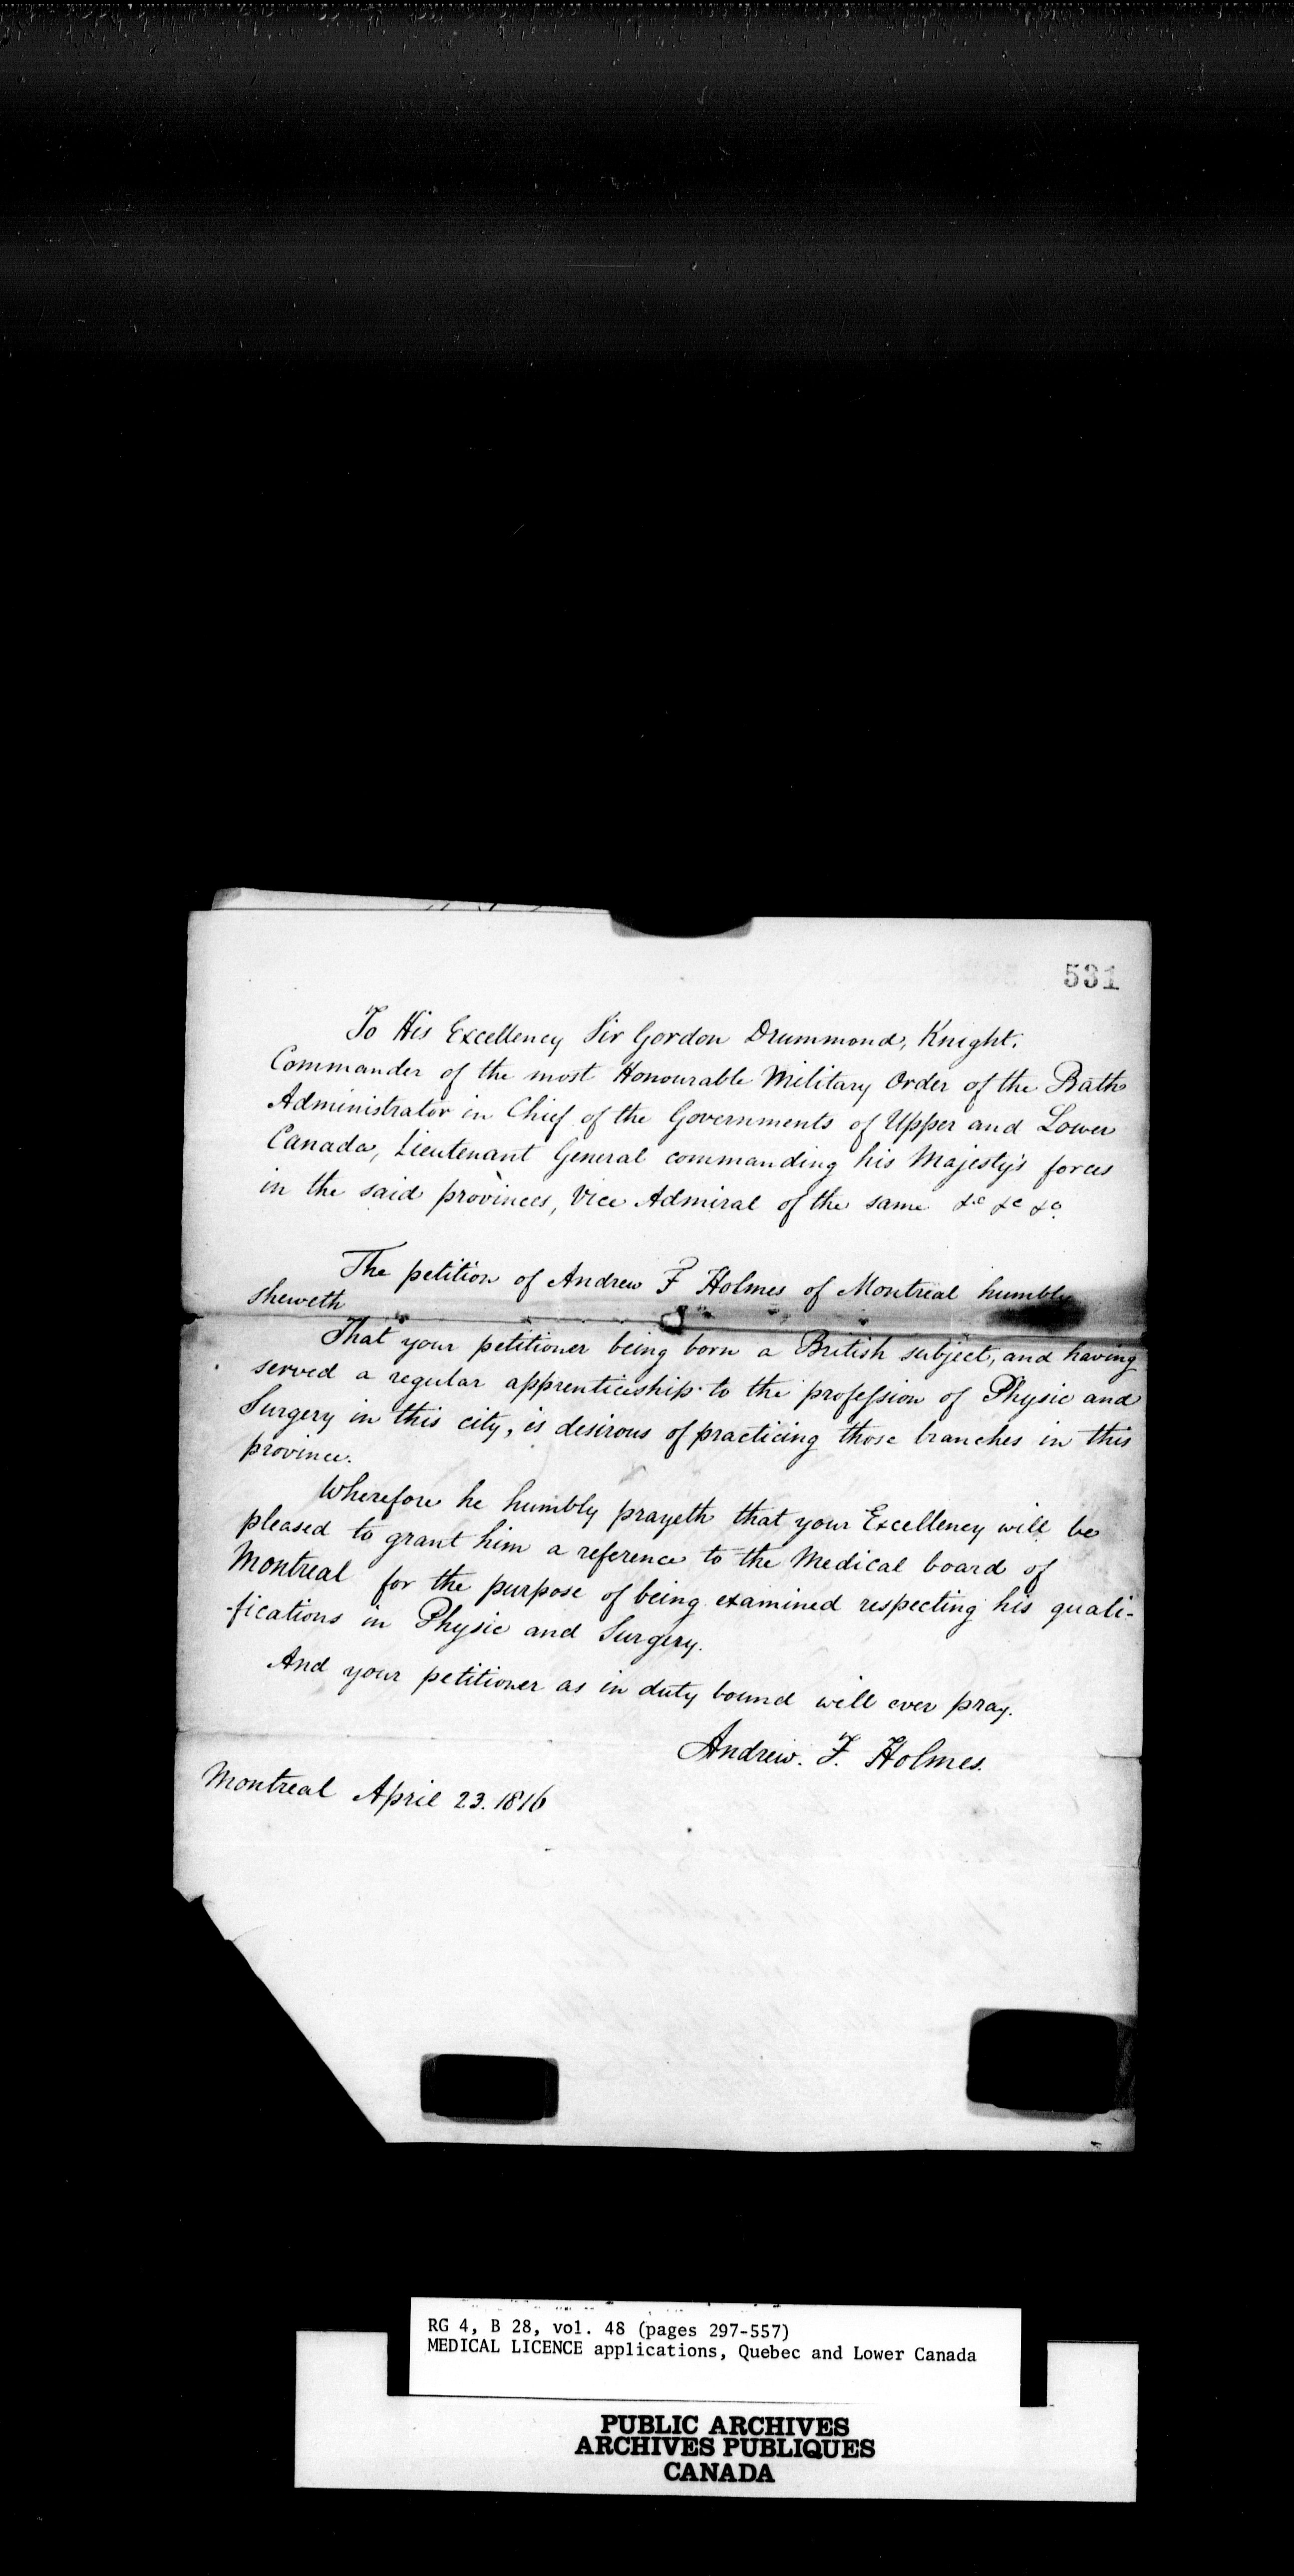 531
To His Excellency Sir Gordon Drummond, Knight.
Commander of the most Honourable Military Order of the Bath
Administrator in Chief of the Governments of Upper and Lower
Canada, Lieutenant General commanding his Majesty's forces
in the said provinces, Vice Admiral of the same &c &c &c
The petition of Andrew F Holmes of Montreal humbly
sheweth
That your petitioner being born a British subject, and having
served a regular apprenticeship to the profession of Physic and
Surgery in this city, is desirous of practicing those branches in this
province.
Wherefore he humbly prayeth that your Excellency will be
pleased to grant him a reference to the Medical board of
Montreal for the purpose of being examined respecting his quali-
-fications in Physic and Surgery.
And your petitioner as in duty bound will ever pray.
Andrew. F. Holmes.
Montreal April 23. 1816
RG 4, B 28, vol. 48 (pages 297-557)
MEDICAL LICENCE applications, Quebec and Lower Canada
PUBLIC ARCHIVES
ARCHIVES PUBLIQUES
CANADA